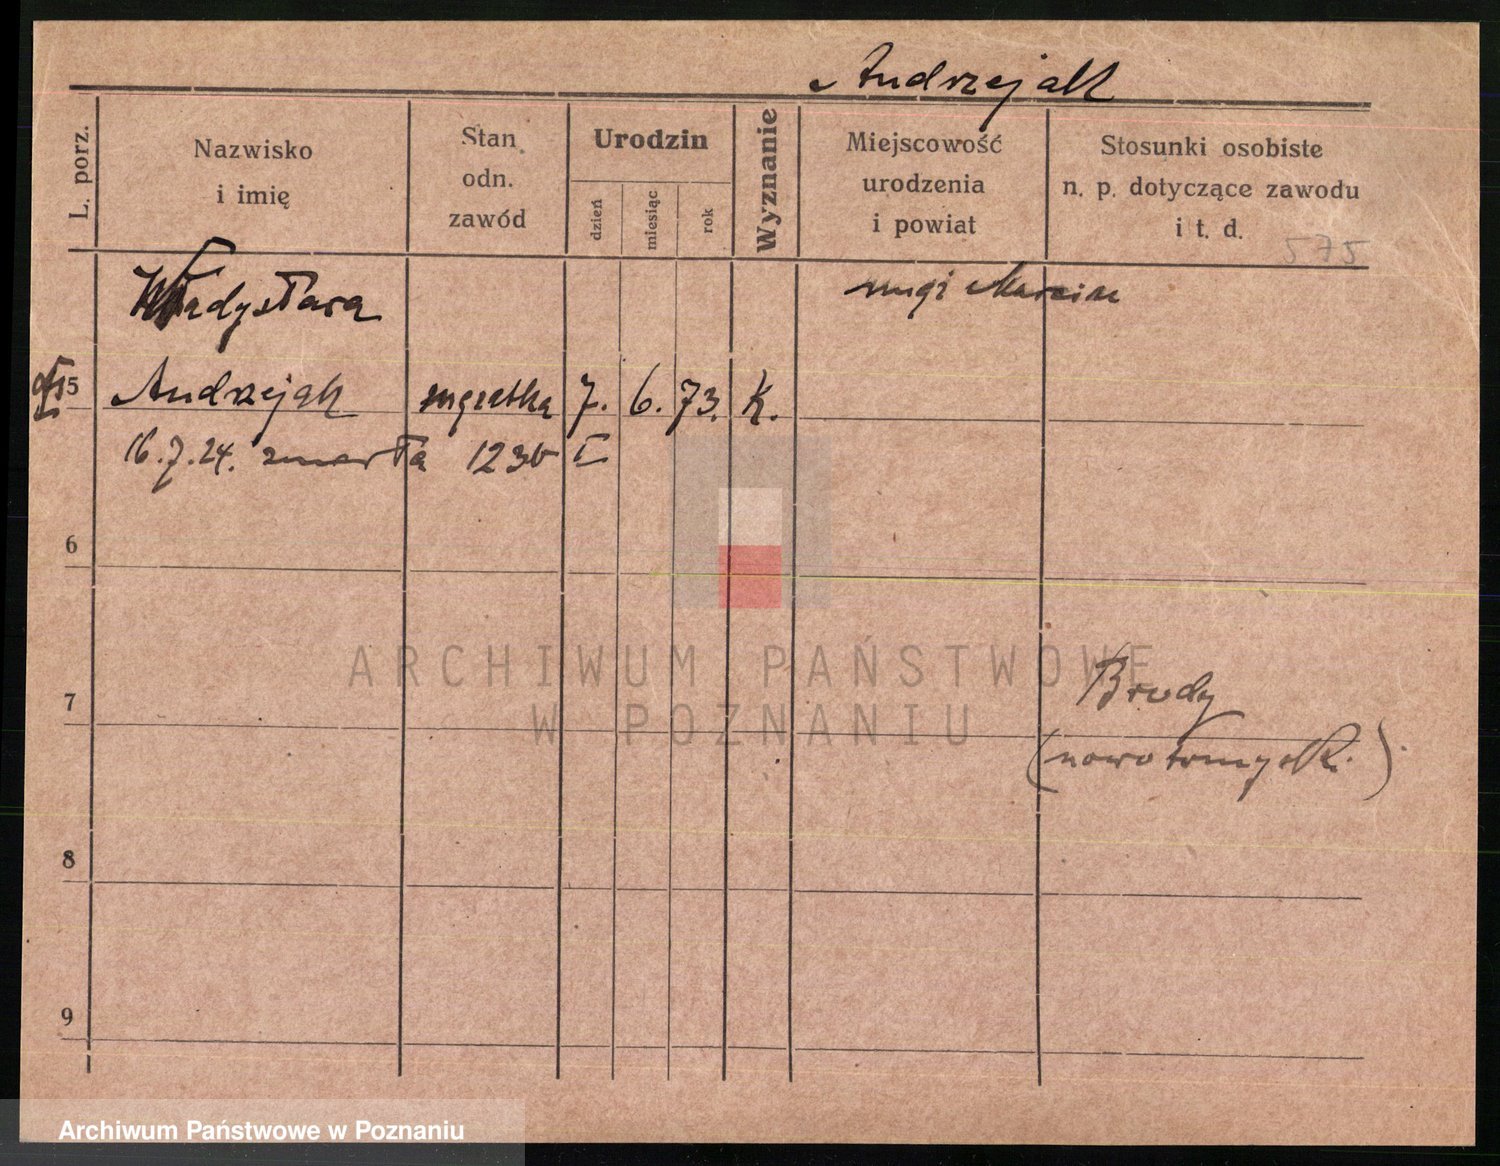 Andrzejak
L. porz.
Nazwisko
i imię
Stan
odn.
zawód
Urodzin
dzień
miesiąc
rok
Wyznanie
Miejscowość
urodzenia
i powiat
Stosunki osobiste
n. p. dotyczące zawodu
i t. d.
575
Władysława
Marcin
5 Andrzejak mężatka 7. 6. 73. K.
16.7.24. zmarła 1230 I
6
7 Brody
(nowotomyski.)
8
9
ARCHIWUM PAŃSTWOWE
W POZNANIU
Archiwum Państwowe w Poznaniu